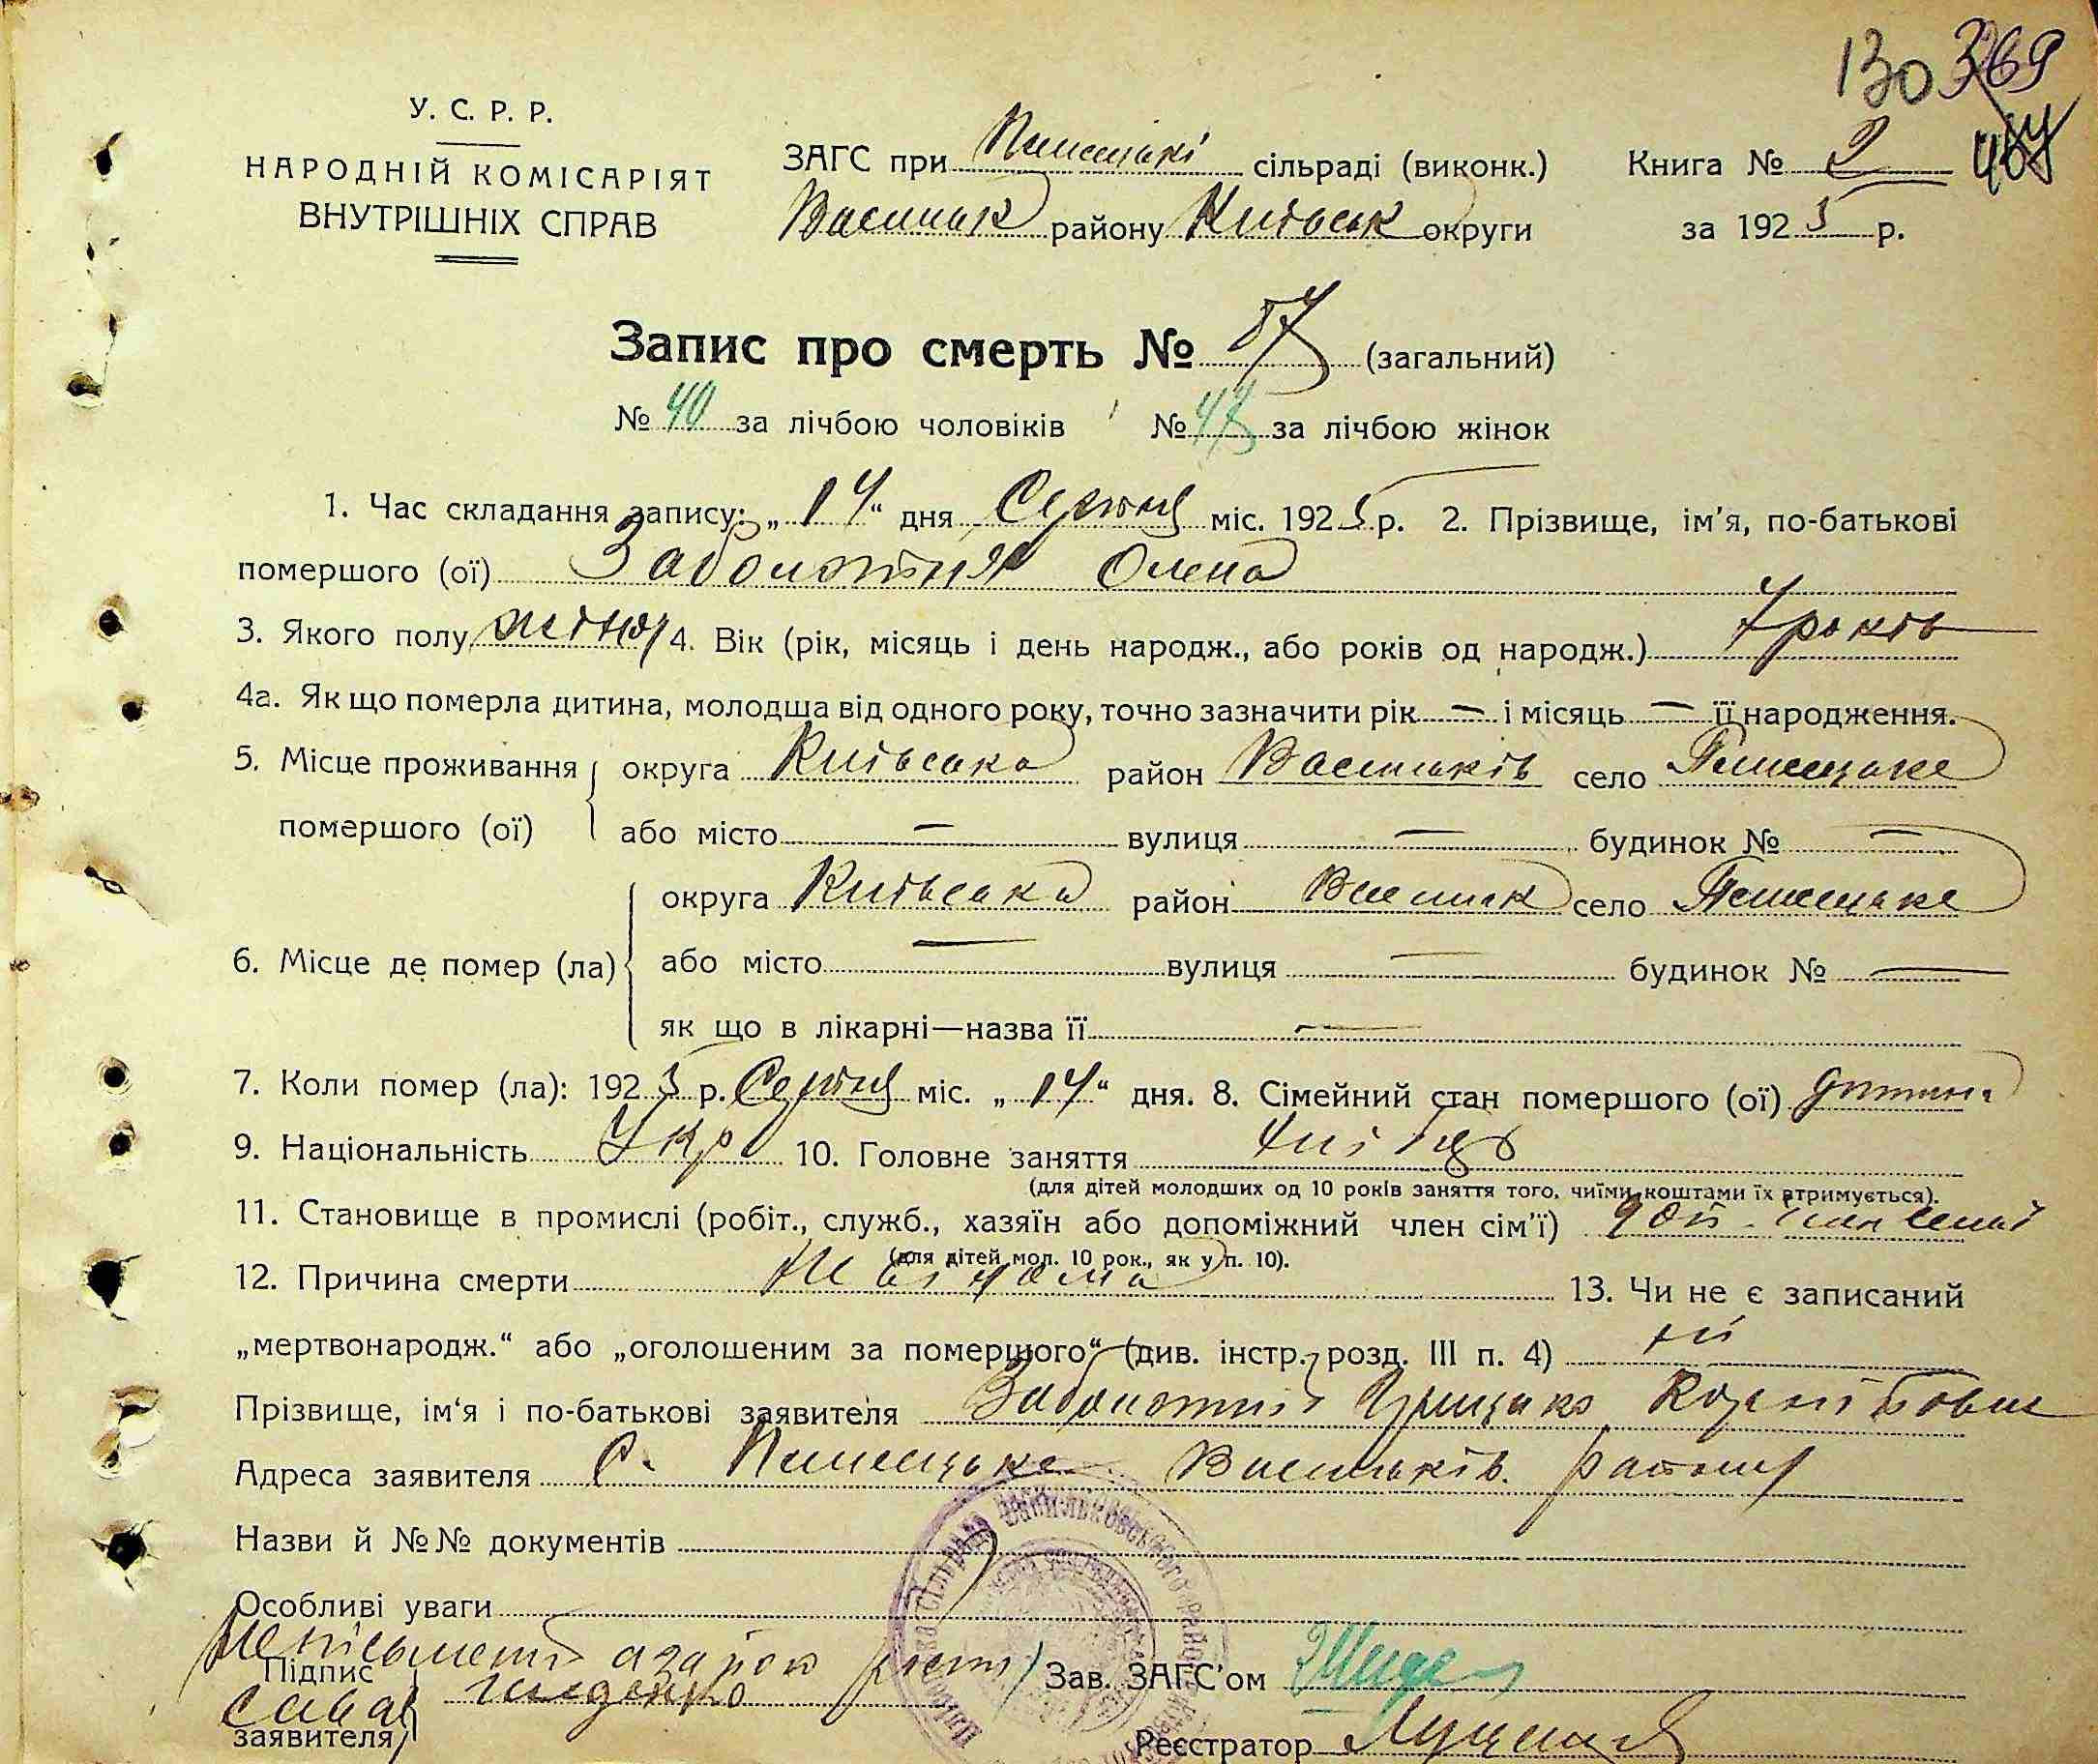 130 369
У. С. Р. Р.
НАРОДНІЙ КОМІСАРІЯТ
ВНУТРІШНІХ СПРАВ
ЗАГС при сільраді (виконк.)
Васильк району Київськ округи
Книга № 2
за 1925 р.
Запис про смерть № 87 (загальний)
№ 40 за лічбою чоловіків № 47 за лічбою жінок
1. Час складання запису: „14“ дня Серпня міс. 1925 р. 2. Прізвище, ім'я, по-батькові
помершого (ої) Заболотня Олена
3. Якого полу жіноч 4. Вік (рік, місяць і день народж., або років од народж.) 7 років
4а. Як що померла дитина, молодша від одного року, точно зазначити рік — і місяць — її народження.
5. Місце проживання округа Київська район Васильків село
помершого (ої) або місто — вулиця — будинок № —
округа Київська район Васильк село
6. Місце де помер (ла) або місто — вулиця — будинок № —
як що в лікарні—назва її —
7. Коли помер (ла): 1925 р. Серпня міс. „14“ дня. 8. Сімейний стан помершого (ої) дитина
9. Національність Укр 10. Головне заняття хлібор
(для дітей молодших од 10 років заняття того, чиїми коштами їх втримується).
11. Становище в промислі (робіт., служб., хазяїн або допоміжний член сім'ї) доп. член семьї
(для дітей мол. 10 рок., як у п. 10).
12. Причина смерти не відома 13. Чи не є записаний
„мертвонародж.“ або „оголошеним за померщого“ (див. інстр. розд. III п. 4) ні
Прізвище, ім'я і по-батькові заявителя Заболотній Грицько
Адреса заявителя С. Васильків. району
Назви й №№ документів
Особливі уваги
Неписьмений а за його
Підпис
заявителя
Зав. ЗАГС'ом
Реєстратор